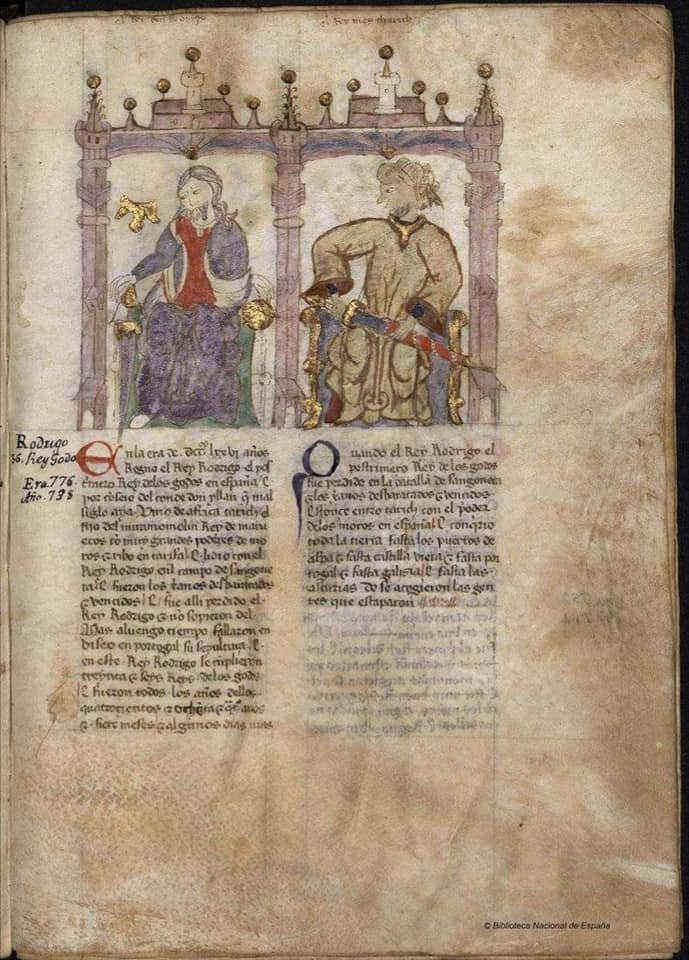 el Rey don Rodrigo
el Rey
Rodrigo
36. Rey Godo
Era. 776
Año. 738
En la era de. DCC. lxxvi años
Regno el Rey Rodrigo el pos
trimero Rey delos godos en españa
por cōseio del conde don yllan q̄ mal
siglo aya. vino de africa tarich
fijo del miramomelin Rey de marru
ecos cō muy grandes poderes de mo
ros ⁊ ribo en tarifa ⁊ lidio con el
Rey Rodrigo en l campo de sangone
ra ⁊ fueron los x̄anos desbaratados
⁊ vencidos ⁊ fue alli perdido el
Rey Rodrigo ⁊ no sopieron del
Mas a luengo tiempo fallaron en
viseo en portogal su sepultura ⁊
en este Rey Rodrigo se cūplieron
treynta ⁊ seys Reys delos godos
⁊ fueron todos los años dellos
quatrocientos ⁊ años
⁊ siete meses ⁊ algunos dias mas
Quando el Rey Rodrigo el
postrimero Rey de los godos
fue perdido en la batalla de sangonera
⁊ los x̄anos desbaratados ⁊ vencidos
Estonce entro tarich con el poder
delos moros en españa ⁊ conqrio
toda la tierra fasta los puertos de
aspa ⁊ fasta castilla vieia ⁊ fasta por
togal ⁊ fasta galizia ⁊ fasta las
asturias do se acogieron las gen
tes que escaparon
© Biblioteca Nacional de España